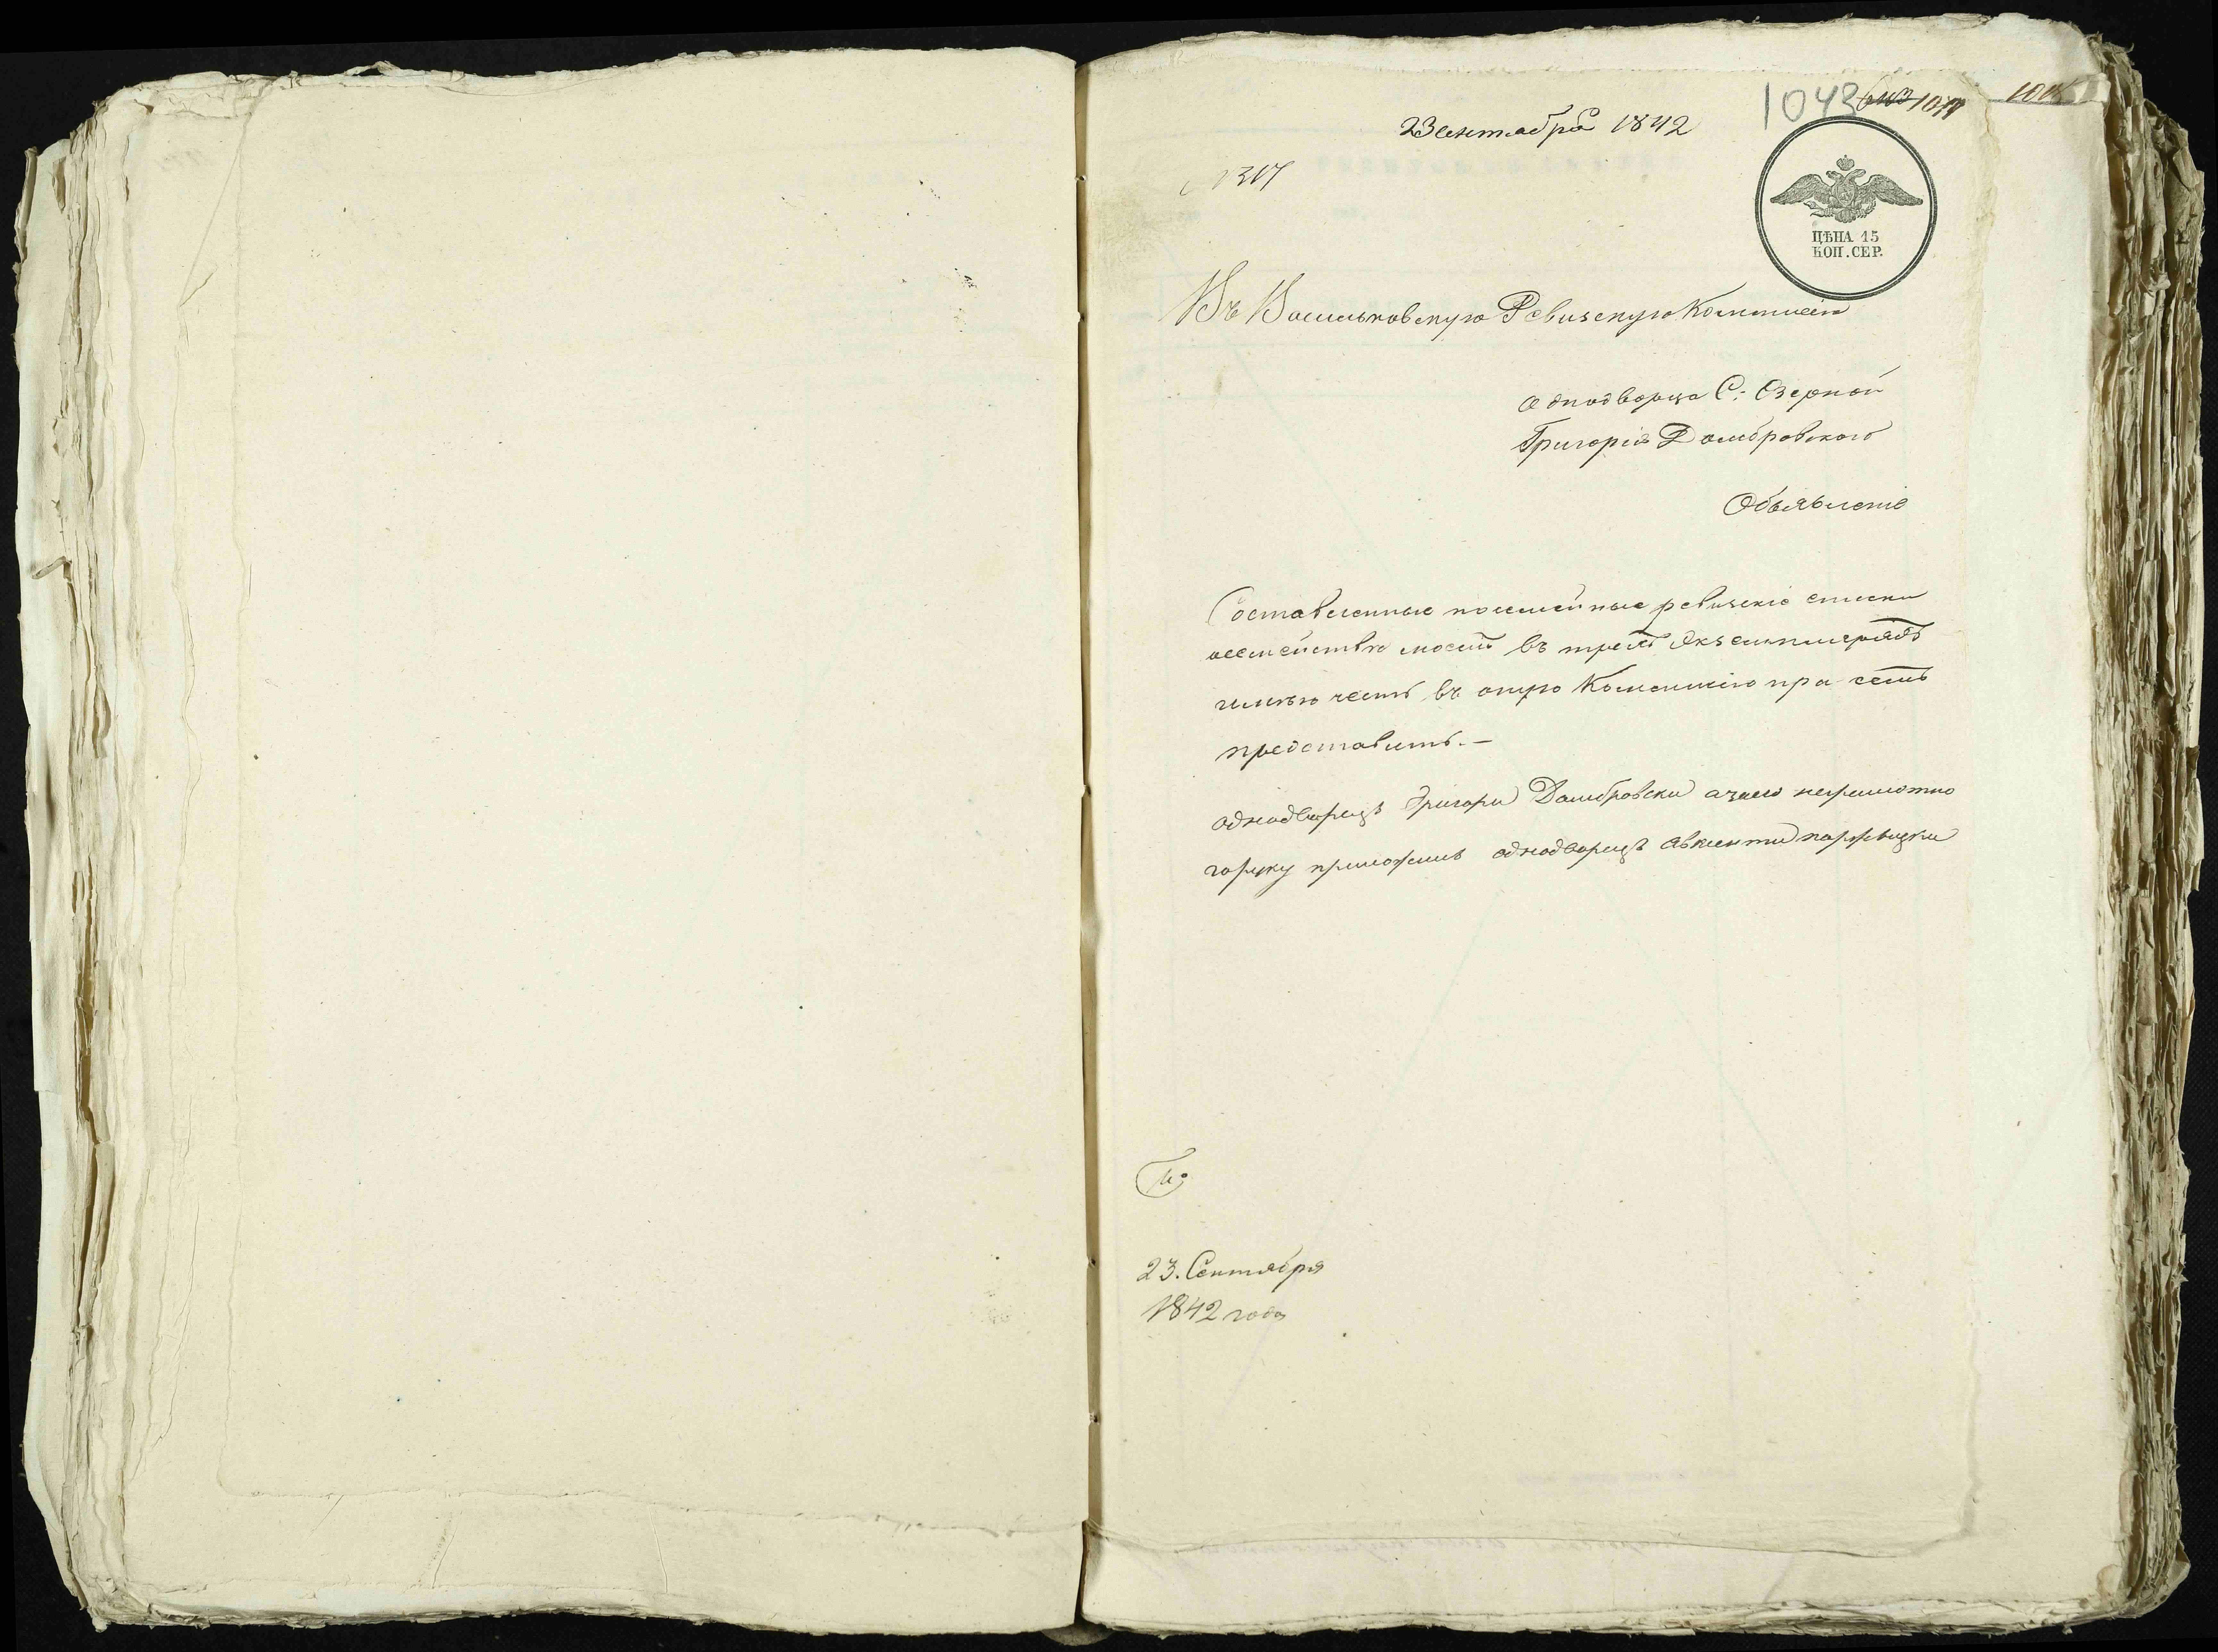 1043 1044
23 Сентября 1842
1317
ЦѢНА 15
КОП. СЕР.
Въ Васильковскую Ревизскую Коммисію
Однодворца С: Озерной
Григорія Домбровского
Объявленіе
Составленные посемейные ревизскіе списки
о семействе моемъ въ трехъ Экземплярахъ
имѣю честь въ оную Коммисію при семъ
представить.—
однодворецъ Григори Домбровски а заего неграмотно
го руку приложил однодворецъ
23. Сентября
1842 года